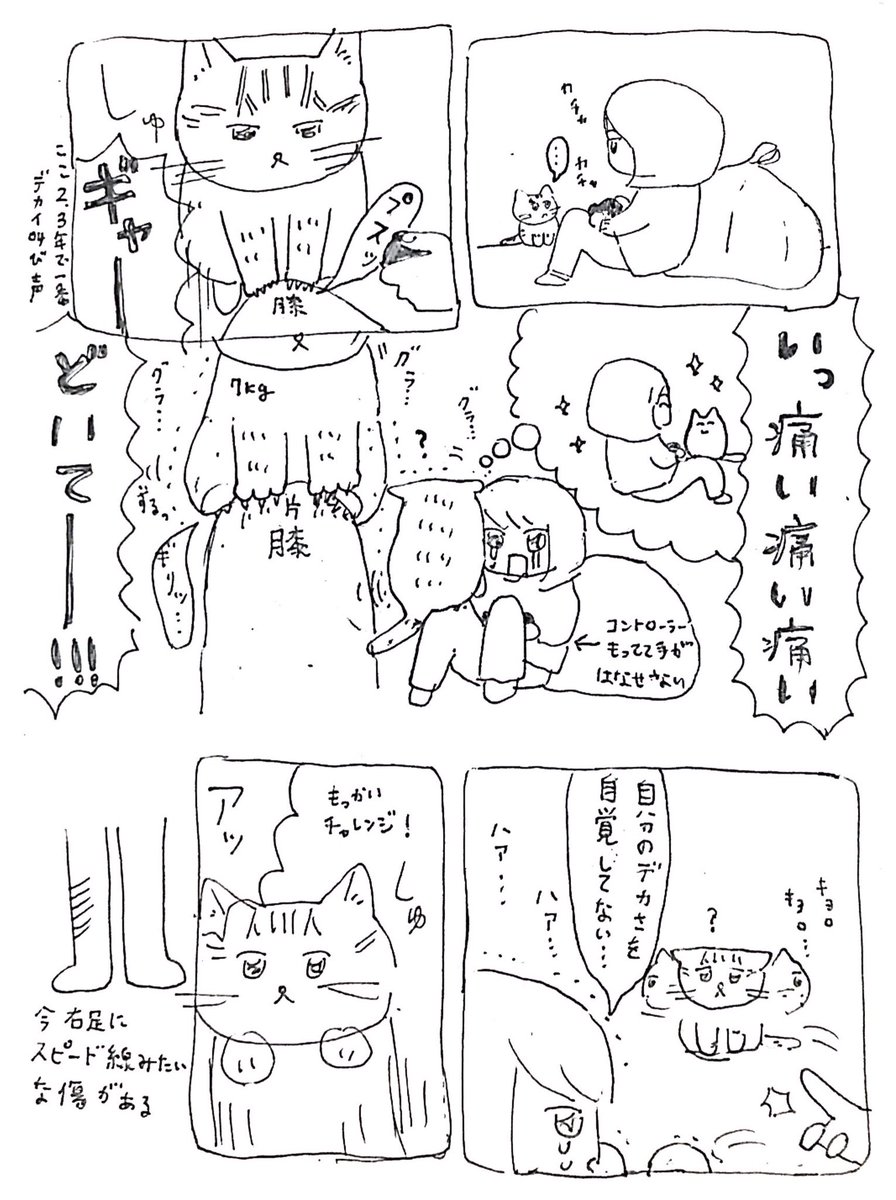 カチャ
カチャ
…
しゅ
プスッ
膝
ギャーー
ここ2、3年で一番
デカイ叫び声
いっ痛い痛い痛い
どいてーー!!!
グラ…
グラ…
グラ…
7kg
?
片膝
ずるっ
ギリッ…
コントローラー
もってて手が
はなせない
自分のデカさを
自覚してない…
キョロ
キョロ…
?
ハァ…
ハァ…
もっかい
チャレンジ!
しゅ
アッ
今右足に
スピード線みたい
な傷がある